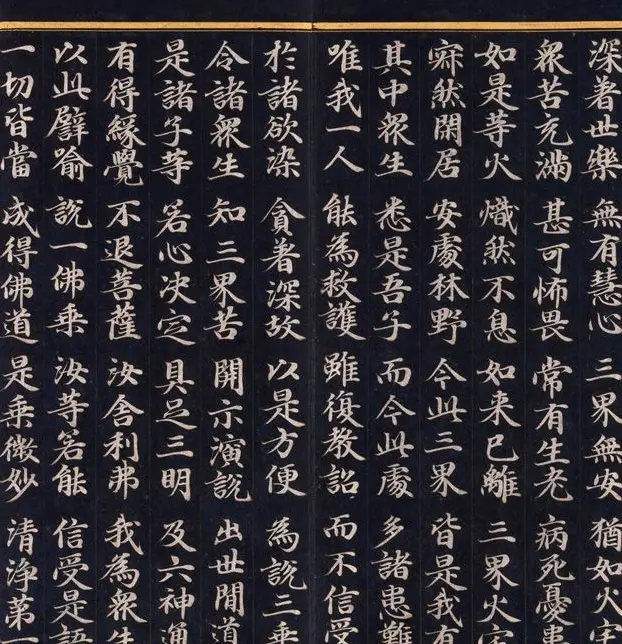 深著世樂 無有慧心 三界無安 猶如火宅
眾苦充滿 甚可怖畏 常有生老 病死憂患
如是等火 熾然不息 如来已離 三界火宅
寂然閑居 安處林野 今此三界 皆是我有
其中眾生 悉是吾子 而今此處 多諸患難
唯我一人 能為救護 雖復教詔 而不信受
於諸欲染 貪著深故 以是方便 為說三乗
令諸眾生 知三界苦 開示演說 出世間道
是諸子等 若心决定 具足三明 及六神通
有得緣覺 不退菩薩 汝舍利弗 我為眾生
以此譬喻 說一佛乗 汝等若能 信受是語
一切皆當 成得佛道 是乗微妙 清淨第一